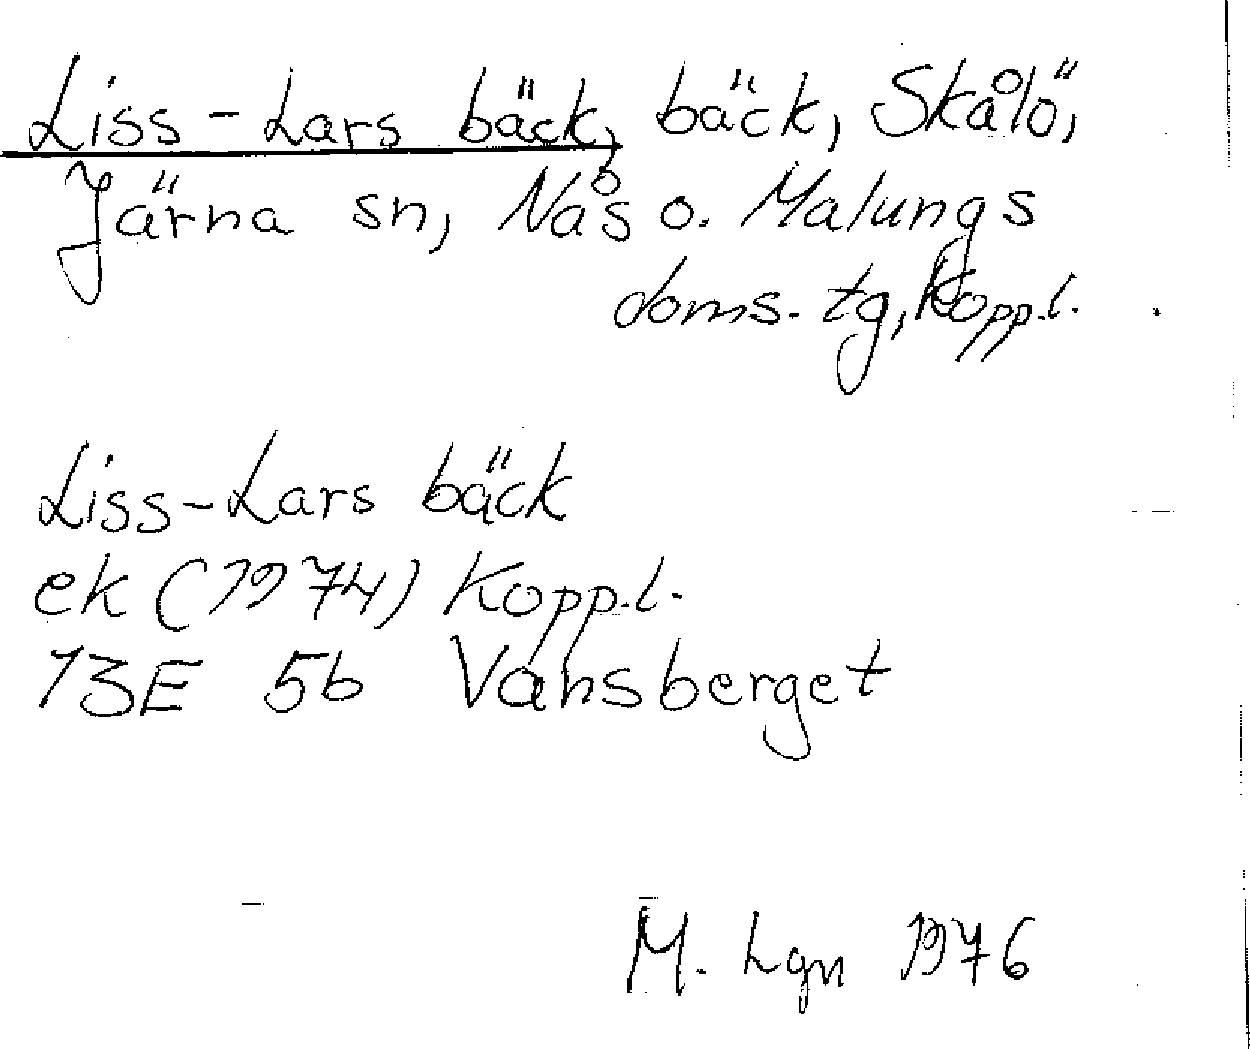 Liss-Lars bäck, bäck, Skålö,
Järna sn, Nås o. Malungs
doms. tg, Kopp.l.
Liss-Lars bäck
ek (1974) Kopp.l.
13E 5b Vansberget
M. Lgn 1976